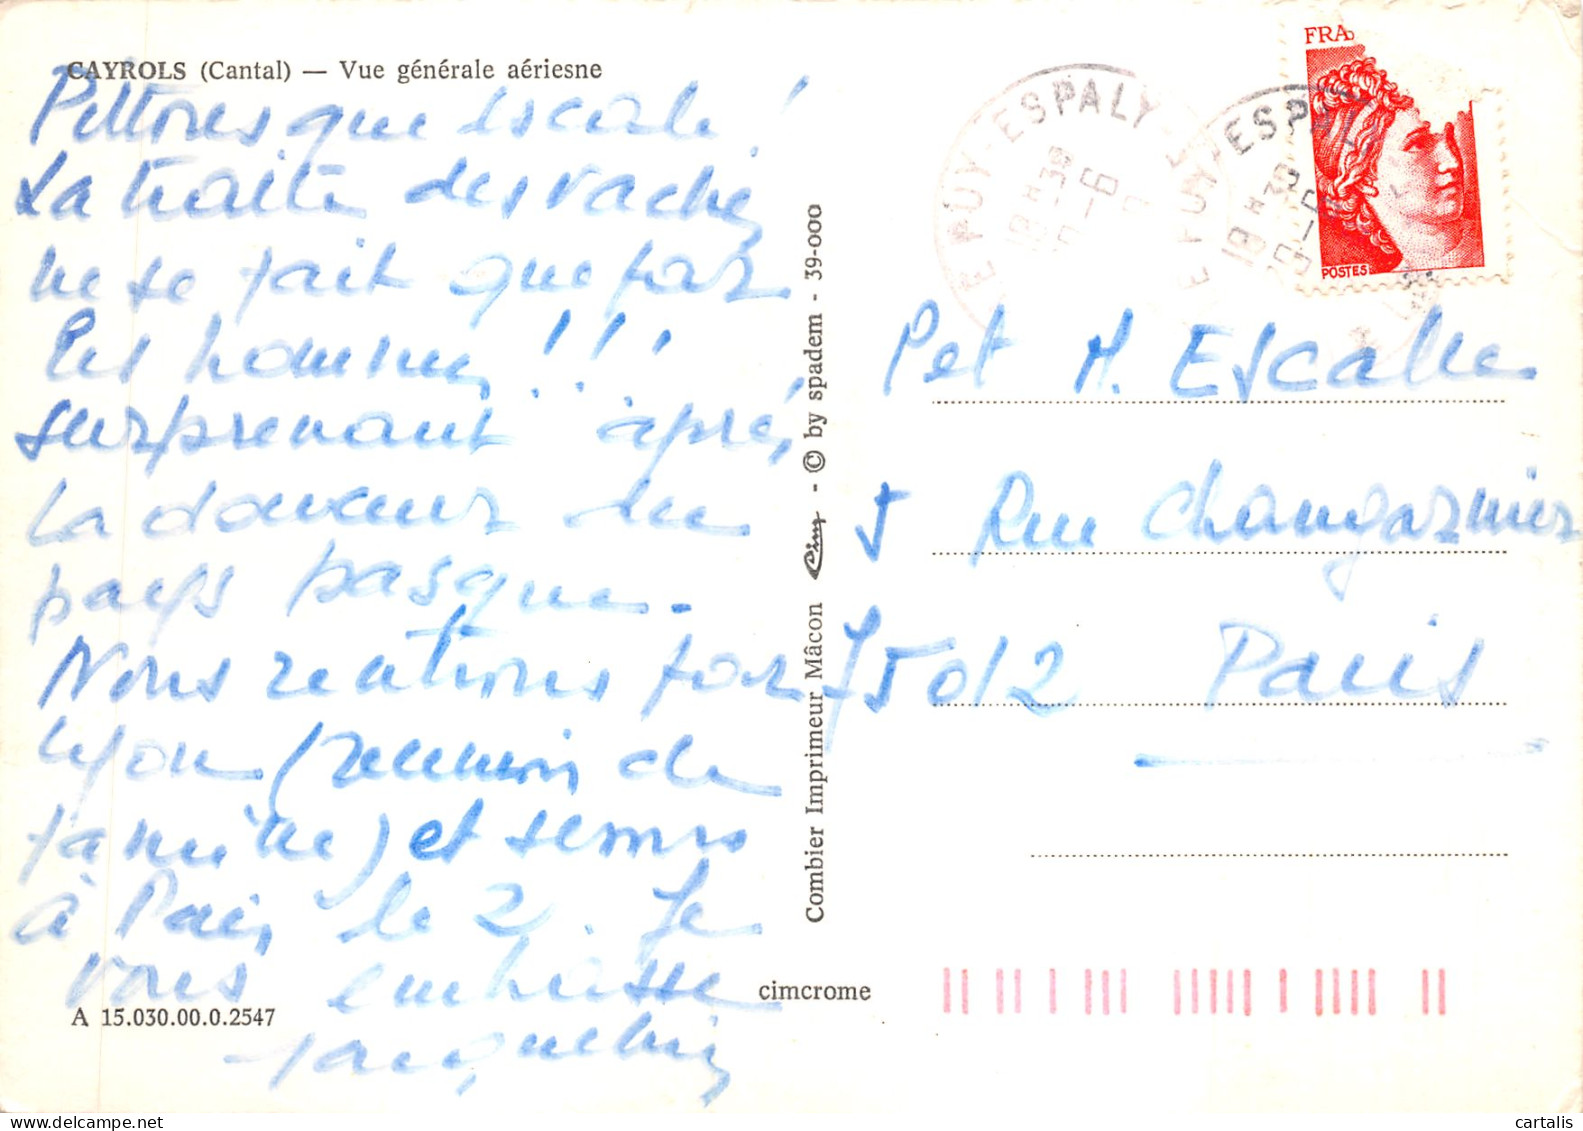 CAYROLS (Cantal) — Vue générale aériesne
Pittoresque escale !
La traite des vaches
ne se fait que par
les hommes !!!
surprenant après
la douceur du
pays basque.
Nous rentrons par
Lyon (réunion de
famille) et serons
à Paris le 2. Je
vous embrasse
Jacqueline
A 15.030.00.0.2547
cimcrome
Combier Imprimeur Mâcon Cim - © by spadem - 39-000
LE PUY-ESPALY
18 H 30
LE PUY-ESPALY
18 H 30
FRA
POSTES
Pet M. Escalle
5 Rue Changarnier
75012 Paris
cartalis